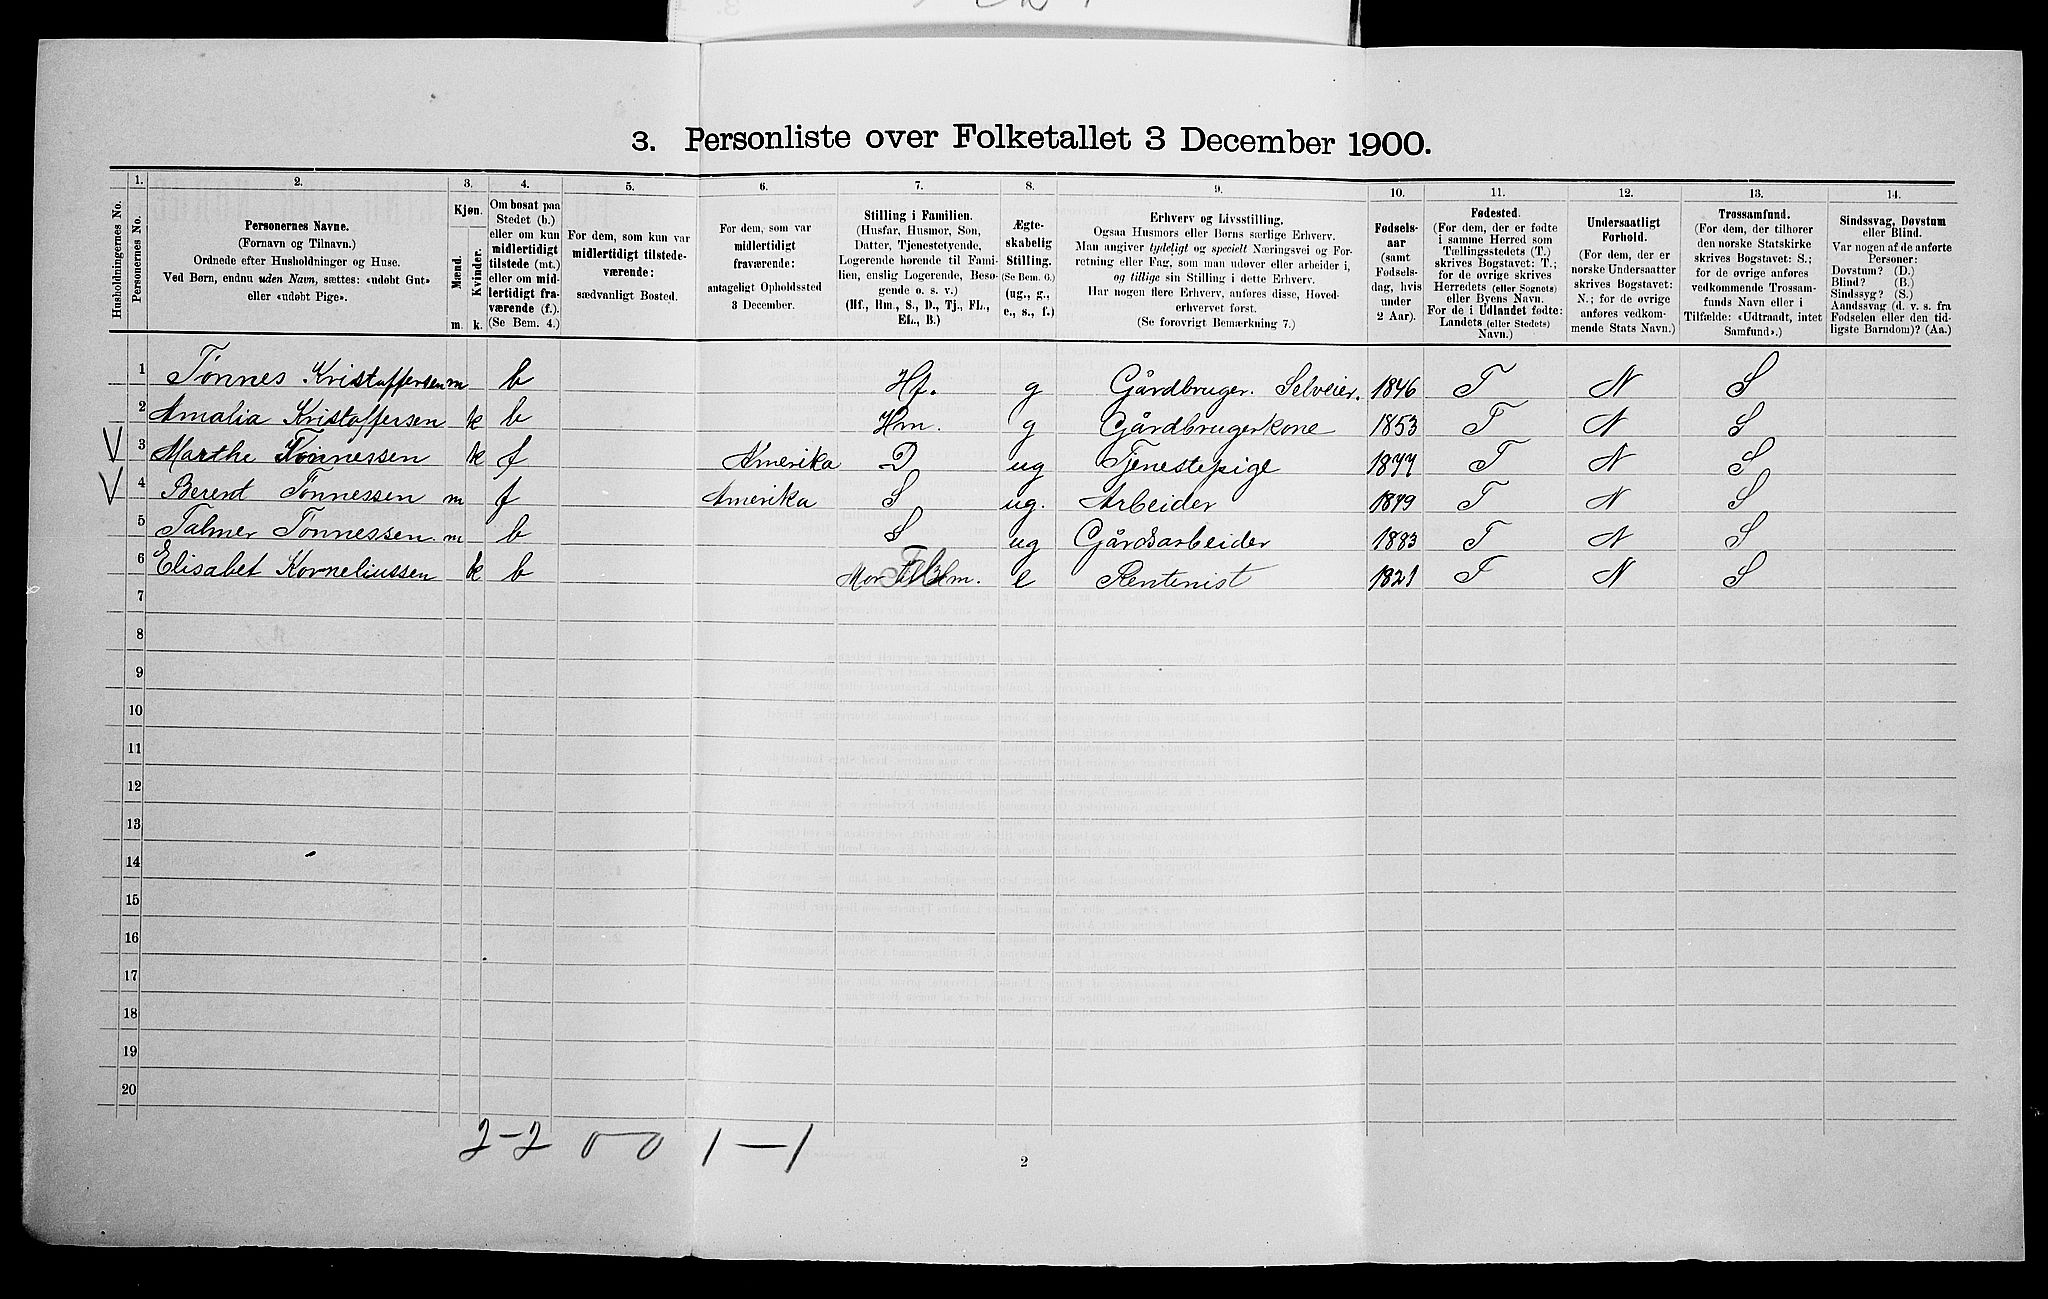 3. Personliste over Folketallet 3 December 1900.
Husholdningernes No.
1. Personernes No.
2. Personernes Navne. (Fornavn og Tilnavn.) Ordnede efter Husholdninger og Huse. Ved Børn, endnu uden Navn, sættes: «udøbt Gut» eller «udøbt Pige».
3. Kjøn. Mænd. Kvinder. m. k.
4. Om bosat paa Stedet (b.) eller om kun midlertidigt tilstede (mt.) eller om midlertidigt fraværende (f.). (Se Bem. 4.)
5. For dem, som kun var midlertidigt tilstedeværende: sædvanligt Bosted.
6. For dem, som var midlertidigt fraværende: antageligt Opholdssted 3 December.
7. Stilling i Familien. (Husfar, Husmor, Søn, Datter, Tjenestetyende, Logerende hørende til Familien, enslig Logerende, Besøgende o. s. v.) (Hf., Hm., S., D., Tj., FL., EL., B.)
8. Ægteskabelig Stilling. (Se Bem. 6.) (ug., g., e., s., f.)
9. Erhverv og Livsstilling. Ogsaa Husmors eller Børns særlige Erhverv. Man angiver tydeligt og specielt Næringsvei og Forretning eller Fag, som man udøver eller arbeider i, og tillige sin Stilling i dette Erhverv. Har nogen flere Erhverv, anføres disse, Hovederhvervet først. (Se forøvrigt Bemærkning 7.)
10. Fødselsaar (samt Fødselsdag, hvis under 2 Aar).
11. Fødested. (For dem, der er fødte i samme Herred som Tællingsstedets (T.) skrives Bogstavet: T.; for de øvrige skrives Herredets (eller Sognets) eller Byens Navn. For de i Udlandet fødte: Landets (eller Stedets) Navn.)
12. Undersaatligt Forhold. (For dem, der er norske Undersaatter skrives Bogstavet: N.; for de øvrige anføres vedkommende Stats Navn.)
13. Trossamfund. (For dem, der tilhører den norske Statskirke skrives Bogstavet: S.; for de øvrige anføres vedkommende Trossamfunds Navn eller i Tilfælde: «Udtraadt, intet Samfund».)
14. Sindssvag, Døvstum eller Blind. Var nogen af de anførte Personer: Døvstum? (D.) Blind? (B.) Sindssyg? (S.) Aandssvag (d. v. s. fra Fødselen eller den tidligste Barndom)? (Aa.)
1 Tønnes Kristoffersen m b Hf. g Gårdbruger. Selveier. 1846 T N S
2 Amalia Kristoffersen k b Hm. g Gårdbrugerkone 1853 T N S
V 3 Marthe Tønnessen k f Amerika D ug Tjenestepige 1877 T N S
V 4 Berent Tønnessen m f Amerika S ug. Arbeider 1879 T N S
5 Talmer Tønnessen m b S ug Gårdsarbeider 1883 T N S
6 Elisabet Korneliussen k b Mor til Hm. e Rentenist 1821 T N S
7
8
9
10
11
12
13
14
15
16
17
18
19
20
2-2 0-0 1-1
2